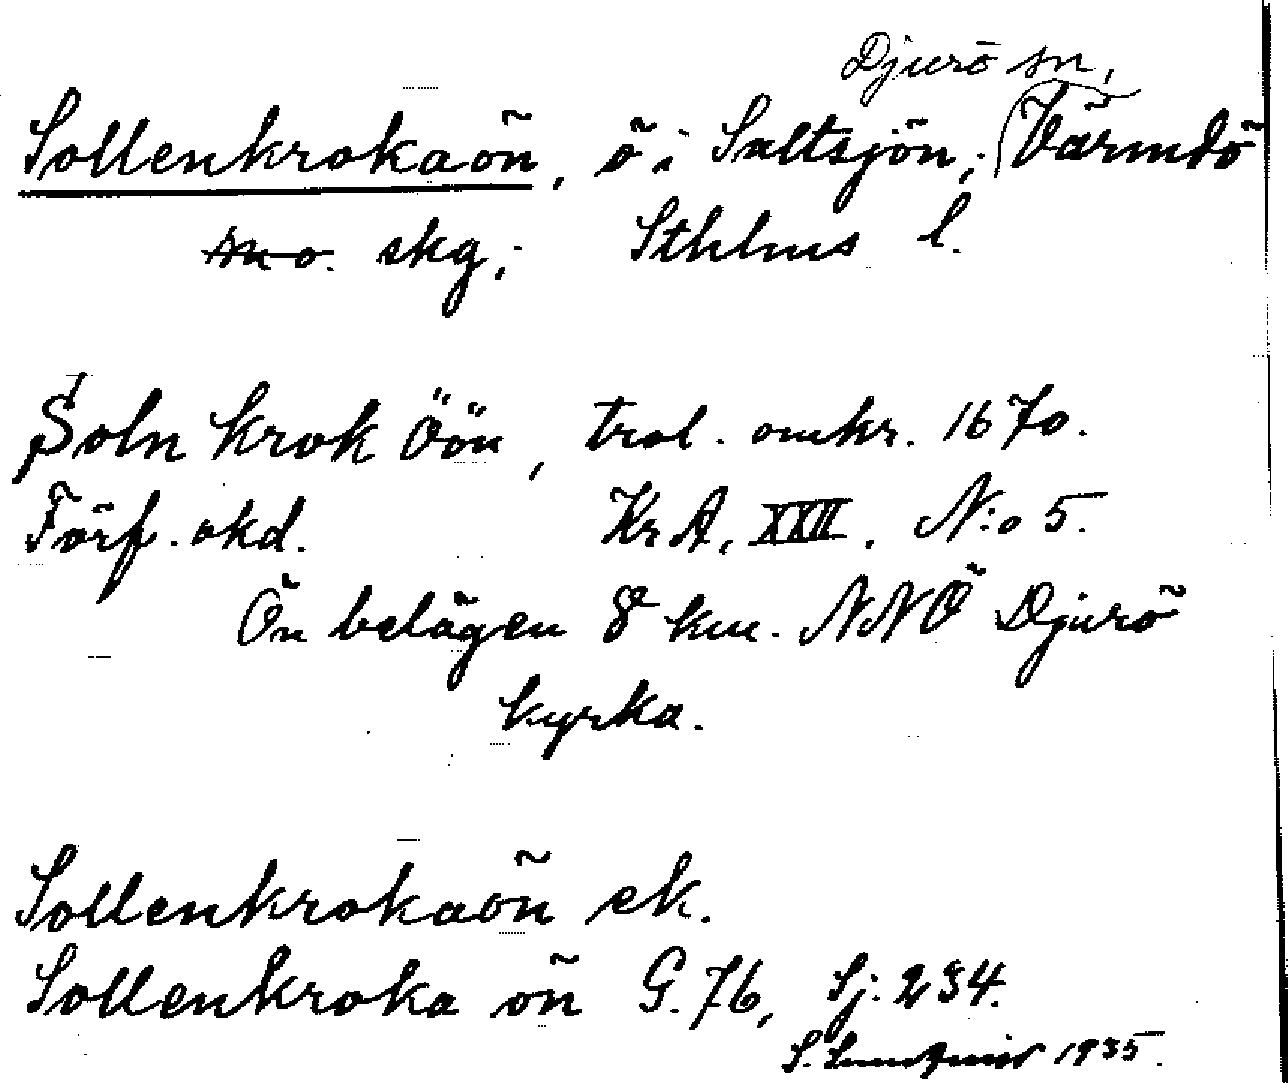 Djurö sn,
Sollenkrokaön, ö i Saltsjön, Värmdö
sn o. skg, Sthlms l.
Soln krok Öön, trol. omkr. 1670.
Förf. okd. KrA, XXII. N:o 5.
Ön belägen 8 km. NNÖ Djurö
kyrka.
Sollenkrokaön ek.
Sollenkroka ön G. 76, Sj. 234.
S. 1935.